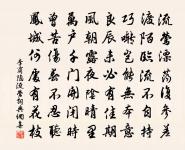 流鶯漂蕩復參差
渡陌臨流不自持
巧囀豈能無本意
良辰未必有佳期
風朝露夜陰晴裏
萬戶千門開閉時
曾苦傷春不忍聽
鳳城何處有花枝
李商隱流鶯